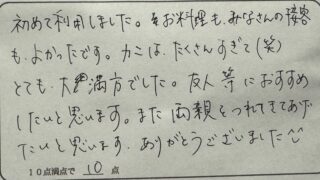 初めて利用しました。お料理も、みなさんの接客
も、よかったです。カニは、たくさんすぎて(笑)
とても、大満方でした。友人等におすすめ
したいと思います。また両親をつれてきてあげ
たいと思います。ありがとうございました
10点満点で 10 点